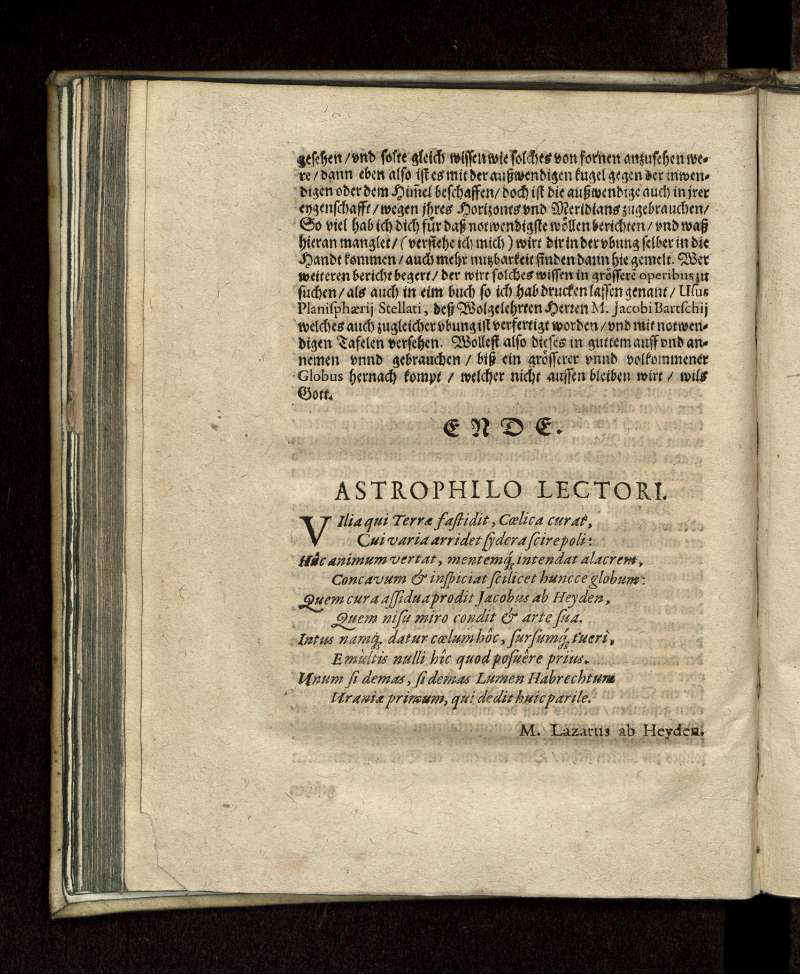 gesehen / vnd solte gleich wissen wie solches von fornen anzusehen we-
re / dann eben also ist es mit der außwendigen kugel gegen der inwen-
digen oder dem Him̃el beschaffen / doch ist die außwendige auch in jrer
eygenschafft / wegen jhres Horizonts vnd Meridians zugebrauchen /
So viel hab ich dich für daß notwendigste wöllen berichten / vnd waß
hieran manglet / (verstehe ich mich) wirt dir in der vbung selber in die
Handt kommen / auch mehr nutzbarkeit finden dann hie gemelt. Wer
weiteren bericht begert / der wirt solches wissen in grössere operibus zu
suchen / als auch in eim buch so ich hab drucken lassen genant / Usus
Planisphærij Stellati, deß Wolgelehrten Herren M. Jacobi Bartschij
welches auch zugleicher vbung ist verfertigt worden / vnd mit notwen-
digen Tafelen versehen. Wollest also dieses in guttem auff vnd an-
nemen vnnd gebrauchen / biß ein grösserer vnnd volkommener
Globus hernach kompt / welcher nicht aussen bleiben wirt / wils
Gott.
ENDE.
ASTROPHILO LECTORI.
VIlia qui Terræ fastidit, Cœlica curat,
Cui varia arridet sydera scire poli:
Hûc animum vertat, mentemq́; intendat alacrem,
Concavum & inspiciat scilicet huncce globum:
Quem cura assidua prodit Jacobus ab Heyden,
Quem nisu miro condit & arte sua.
Intus namq́; datur cœlum hôc, sursumq́; tueri,
E multis nulli hîc quod posuêre prius.
Unum si demas, si demas Lumen Habrechtum
Uraniæ primum, qui dedit huic parile.
M. Lazarus ab Heyden.